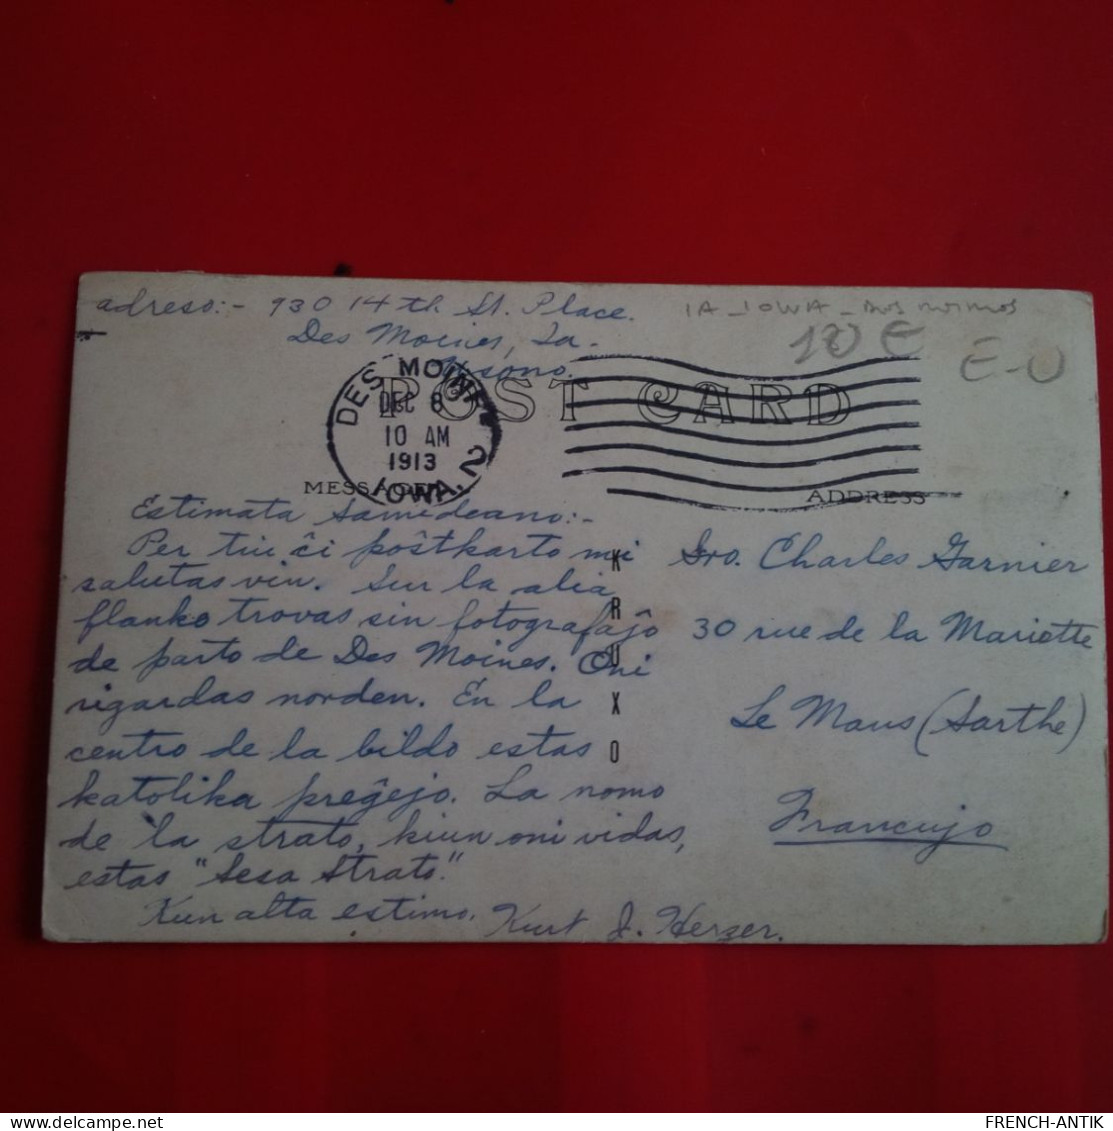 adreso:- 930 14th St. Place.
Des Moines, Ia.
Usono.
IA - IOWA -
10 E
E-U
POST CARD
DES MOINES
DEC 8
10 AM
1913
IOWA. 2
MESSAGE
ADDRESS
Estimata Samideano:-
Per tiu ĉi poŝtkarto mi
salutas vin. Sur la alia
flanko trovas sin fotografaĵo
de parto de Des Moines. Oni
rigardas norden. En la
centro de la bildo estas
katolika preĝejo. La nomo
de la strato, kiun oni vidas,
estas "Sesa Strato".
Kun alta estimo, Kurt J. Herzer.
KRUXO
Sro. Charles Garnier
30 rue de la Mariette
Le Mans (Sarthe)
Francujo
FRENCH-ANTIK